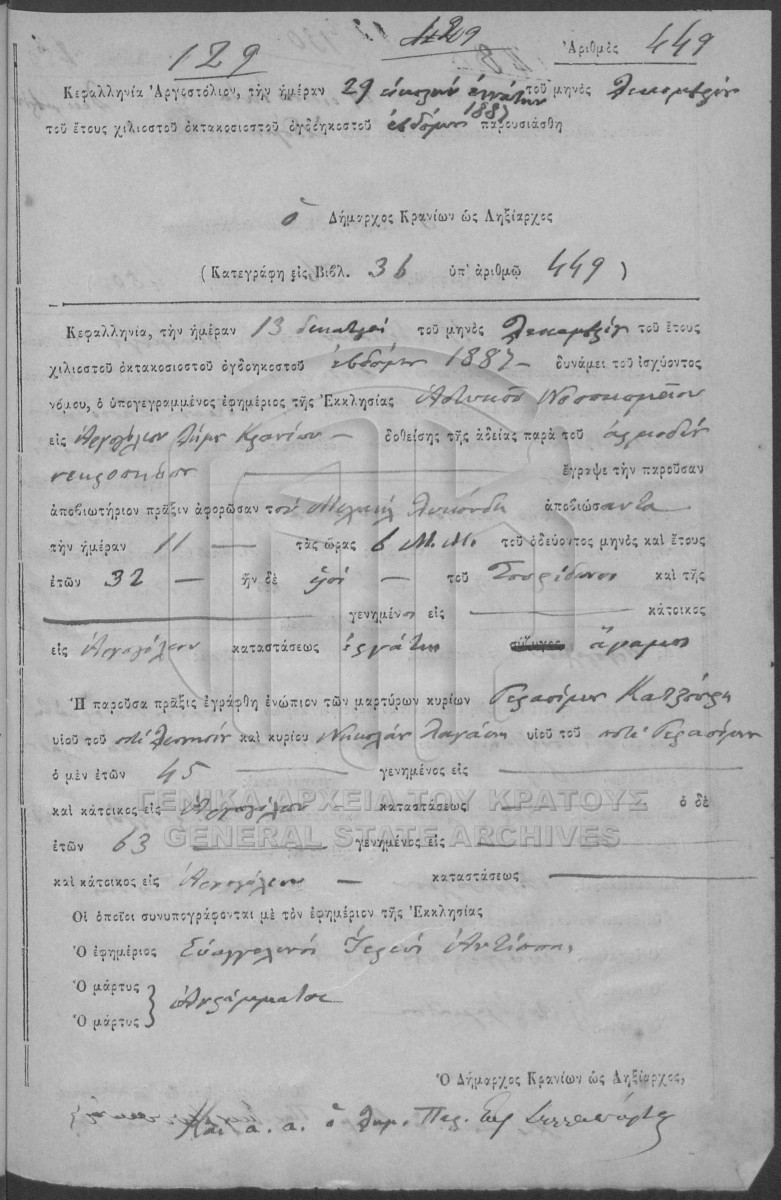 129
Ἀριθμὸς 449
Κεφαλληνία Ἀργοστόλιον, τὴν ἡμέραν 29 εἰκοστὴν ἐννάτην τοῦ μηνὸς Δεκεμβρίου
τοῦ ἔτους χιλιοστοῦ ὀκτακοσιοστοῦ ὀγδοηκοστοῦ ἑβδόμου 1887 παρουσιάσθη
ὁ Δήμαρχος Κρανίων ὡς Ληξίαρχος
(Κατεγράφη εἰς Βιβλ. 36 ὑπ' ἀριθμῷ 449)
Κεφαλληνία, τὴν ἡμέραν 13 δεκατρεῖς τοῦ μηνὸς Δεκεμβρίου τοῦ ἔτους
χιλιοστοῦ ὀκτακοσιοστοῦ ὀγδοηκοστοῦ ἑβδόμου 1887 — δυνάμει τοῦ ἰσχύοντος
νόμου, ὁ ὑπογεγραμμένος ἐφημέριος τῆς Ἐκκλησίας Ἀστυκοῦ Νοσοκομείου
εἰς Ἀργοστόλιον Δήμου Κρανίων — δοθείσης τῆς ἀδείας παρὰ τοῦ ἁρμοδίου
νεκροσκόπου ἔγραψε τὴν παροῦσαν
ἀποβιωτήριον πρᾶξιν ἀφορῶσαν τὸν Μιχαὴλ ἀποβιώσαντα
τὴν ἡμέραν 11 — τὰς ὥρας 6 Μ.Μ. τοῦ ὁδεύοντος μηνὸς καὶ ἔτους
ἐτῶν 32 — ἦν δὲ υἱὸς — τοῦ Σπυρίδωνος καὶ τῆς
γενημένος εἰς κάτοικος
εἰς Ἀργοστόλιον καταστάσεως ἐργάτης σύζυγος ἄγαμος
Ἡ παροῦσα πρᾶξις ἐγράφθη ἐνώπιον τῶν μαρτύρων κυρίων Γερασίμου
υἱοῦ τοῦ ποτὲ Διονυσίου καὶ κυρίου Νικολάου υἱοῦ τοῦ ποτὲ Γερασίμου
ὁ μὲν ἐτῶν 45 γενημένος εἰς
καὶ κάτοικος εἰς Ἀργοστόλιον καταστάσεως — ὁ δὲ
ἐτῶν 63 γενημένος εἰς
καὶ κάτοικος εἰς Ἀργοστόλιον — καταστάσεως
Οἱ ὁποῖοι συνυπογράφονται μὲ τὸν ἐφημέριον τῆς Ἐκκλησίας
Ὁ ἐφημέριος Εὐαγγελινὸς Ἱερεὺς
Ὁ μάρτυς
Ὁ μάρτυς } Ἀγράμματοι
Ὁ Δήμαρχος Κρανίων ὡς Ληξίαρχος,
ΓΕΝΙΚΑ ΑΡΧΕΙΑ ΤΟΥ ΚΡΑΤΟΥΣ
GENERAL STATE ARCHIVES